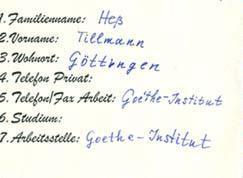 1. Familienname: Heß
2. Vorname: Tillmann
3. Wohnort: Göttingen
4. Telefon Privat:
5. Telefon/Fax Arbeit: Goethe-Institut
6. Studium:
7. Arbeitsstelle: Goethe-Institut